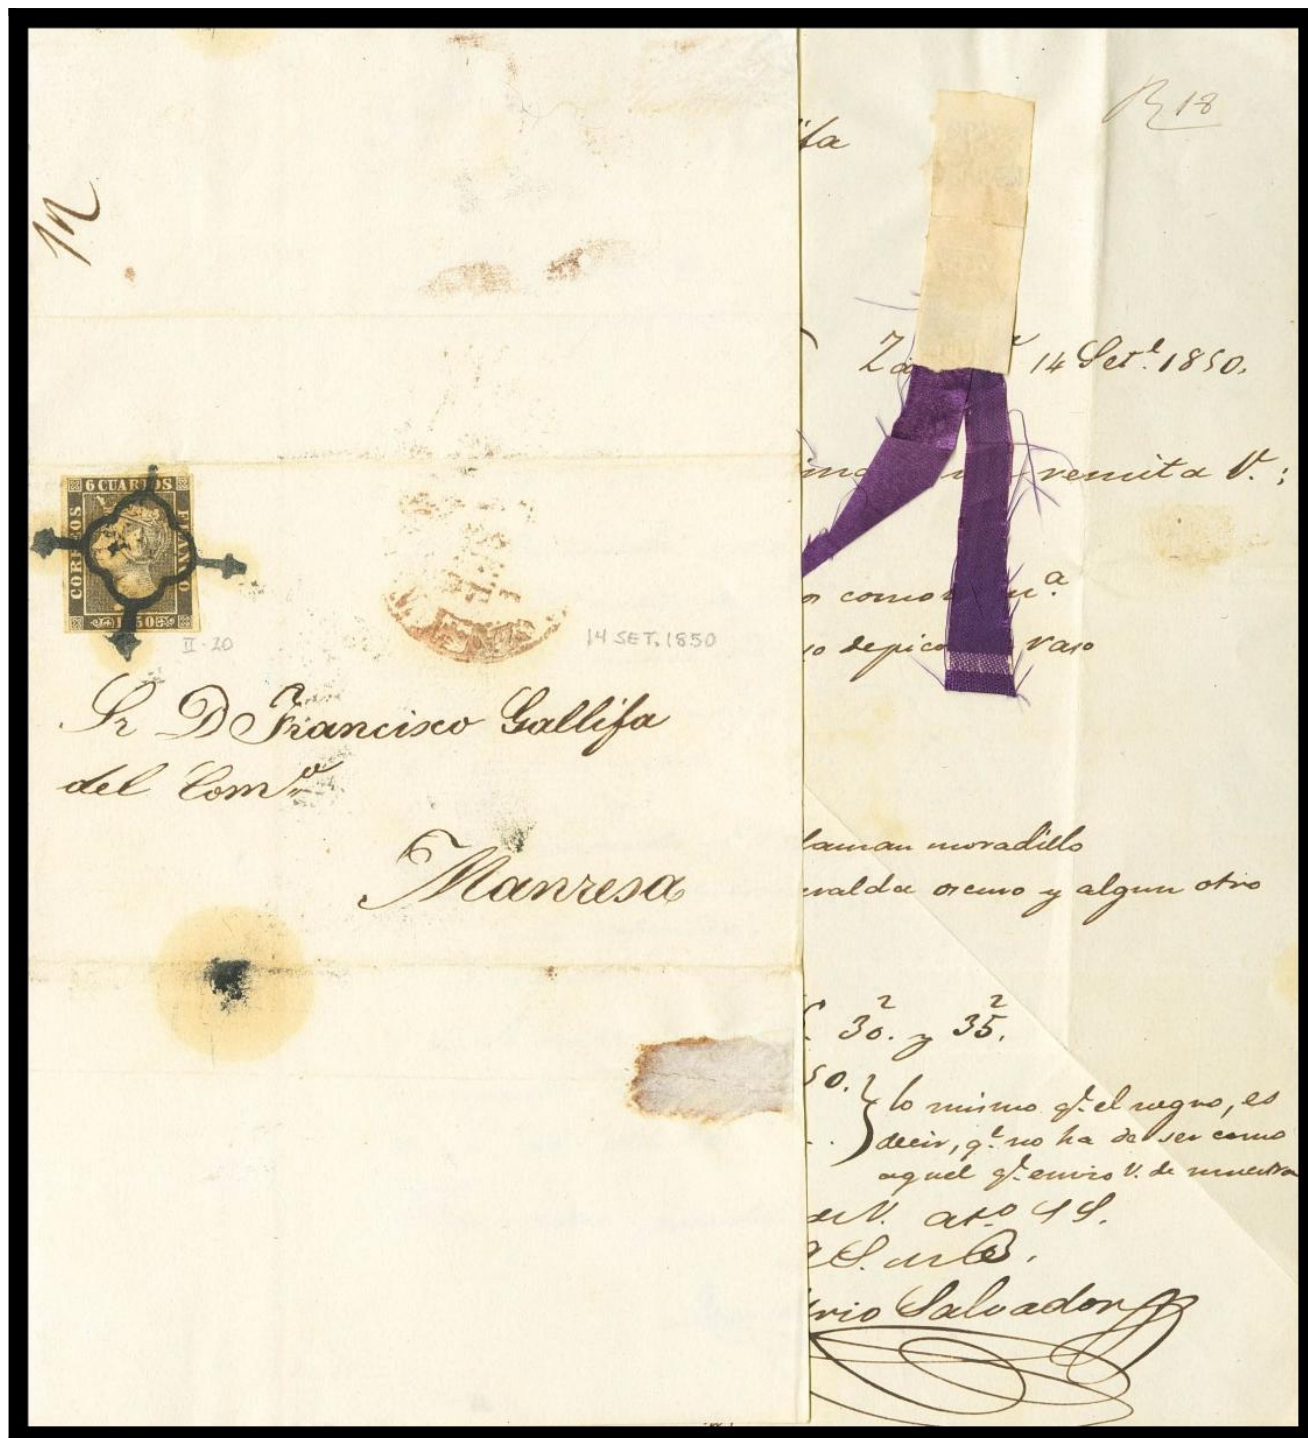 m
6 CUARTOS
CORREOS
FRANCO
1850
II-20
14 SET. 1850
Sr D Francisco Gallifa
del Como
Manresa
R 18
ifa
Za 14 Sete. 1850.
remita V.;
como na.
de pico raso
laman moradillo
eralda oscuro y algun otro
30.2 y 35.2
50.
lo mismo qe. el negro, es
decir, qe. no ha de ser como
aquel qe. envio V. de muestra
de V. ato. S S.
Q S. M B.
rio Salvador